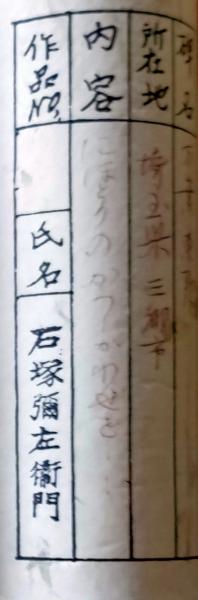 所在地 埼玉県三郷市
内容 にほとりのかつしかわせを・・・
作品NO.
氏名 石塚彌左衞門